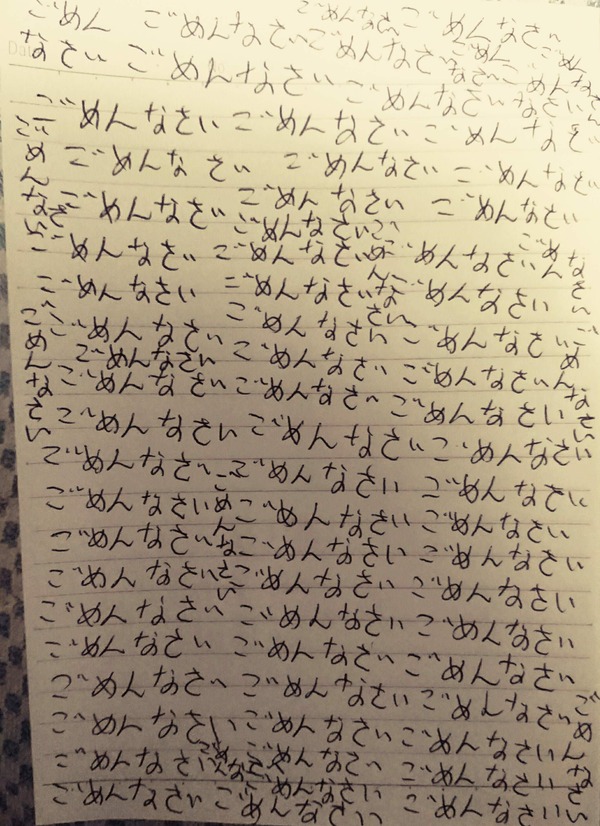 ごめん ごめんなさい ごめんなさい ごめんなさい
なさい ごめんなさい ごめんなさい
ごめんなさい ごめんなさい ごめんなさい
ごめんなさい ごめんなさい ごめんなさい
ごめんなさい ごめんなさい ごめんなさい
ごめんなさい
ごめんなさい ごめんなさい ごめんなさい
ごめんなさい ごめんなさい ごめんなさい
ごめんなさい
ごめんなさい ごめんなさい ごめんなさい
ごめんなさい
ごめんなさい ごめんなさい ごめんなさい
ごめんなさい ごめんなさい ごめんなさい
ごめんなさい ごめんなさい ごめんなさい
ごめんなさい ごめんなさい ごめんなさい
ごめんなさい ごめんなさい ごめんなさい
ごめんなさい ごめんなさい ごめんなさい
ごめんなさい ごめんなさい ごめんなさい
ごめんなさい ごめんなさい ごめんなさい
ごめんなさい ごめんなさい ごめんなさい
ごめんなさい ごめんなさい ごめんなさい
ごめんなさい ごめんなさい ごめんなさい
ごめんなさい
ごめんなさい ごめんなさい ごめんなさい
ごめんなさい
ごめんなさい
ごめんなさい
ごめんなさい
ごめんなさい